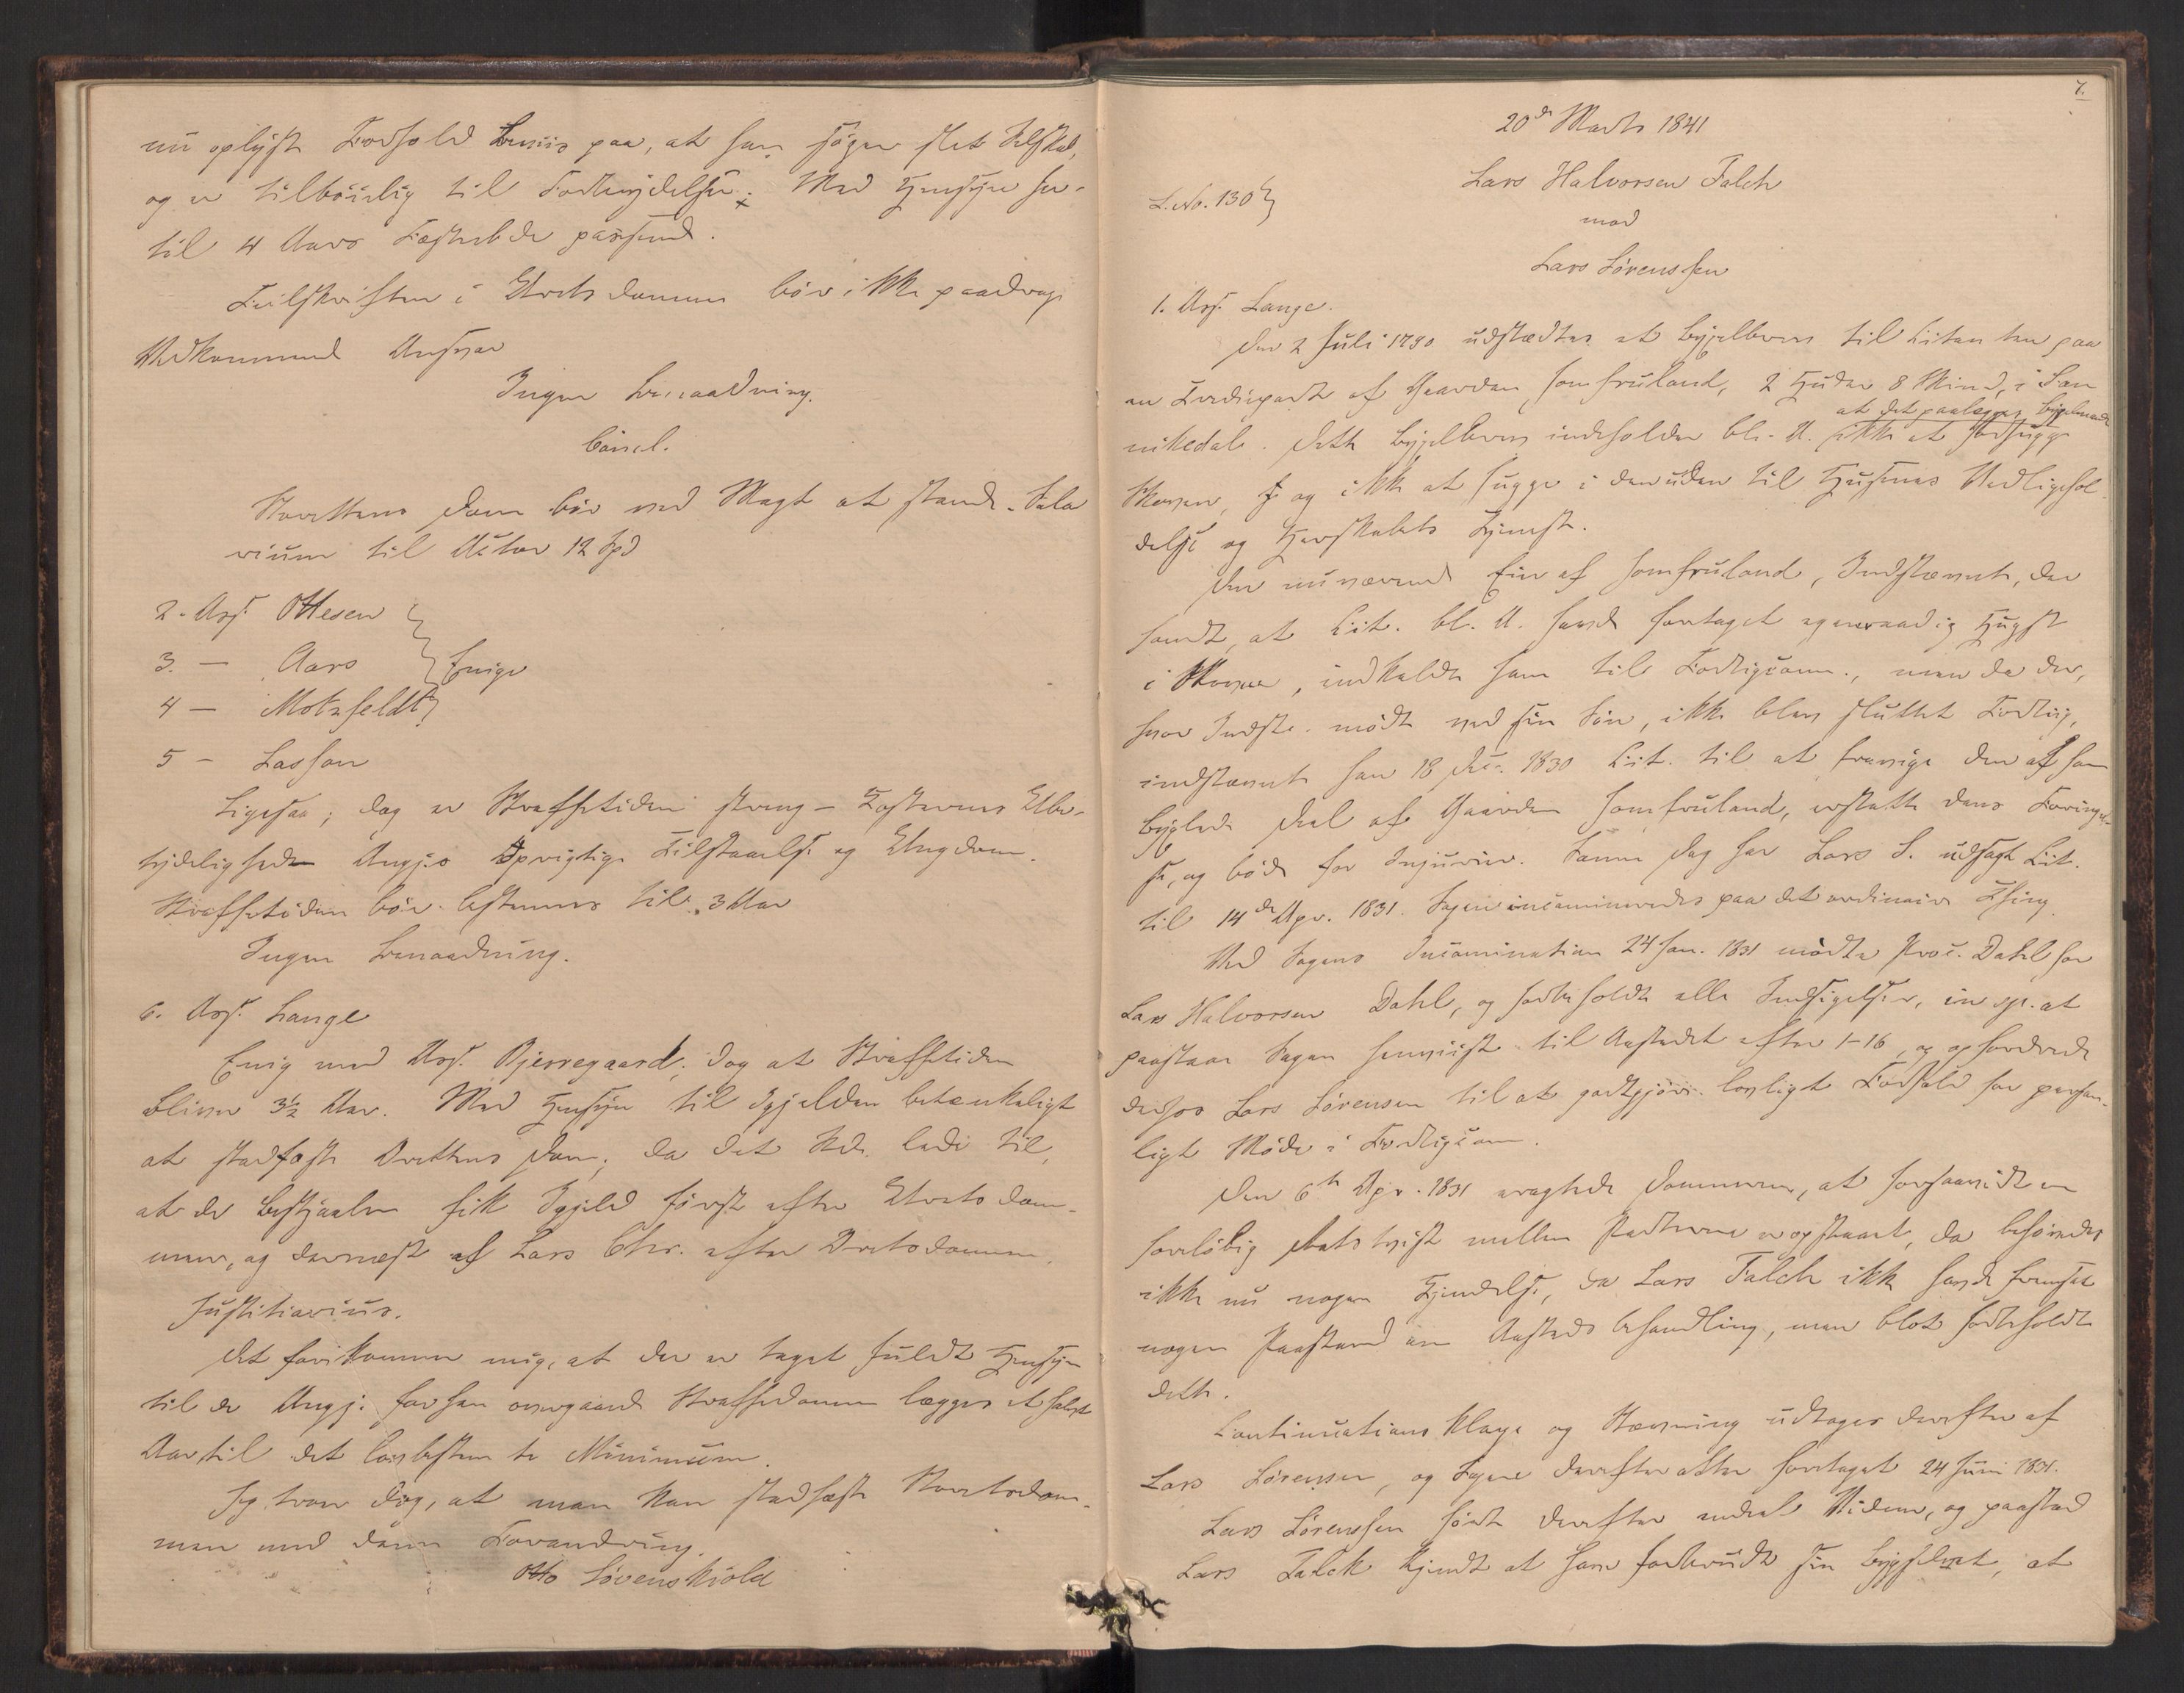 nu oplyste Forhold beviis paa, at han søger slet Selskab,
og er tilbøielig til Fortrydelser. Med Hensyn her-
til 4 Aars Fæstarb. passende.
Feilskriften i Undr.dommen bør ikke paadrage
Vedkommende Ansvar
Ingen Benaadning.
Concl.
Overrettens Dom bør ved Magt at stande. Sala
rium til Actor 12 Spd
2. Ass. Ottesen
3. — Aars Enige
4 — Motzfeldt
5 — Lasson
Ligesaa; dog er Straffetiden streng –
tydelighed Angj.s oprigtige Tilstaaelse og Ungdom.
Straffetiden bør bestemmes til 3 Aar
Ingen Benaadning.
6. Ass. Lange
Enig med Ass. Bjerregaard; dog at Straffetiden
bliver 3½ Aar. Med Hensyn til Igjelden betænkeligt
at stadfæste Overrettens Dom; da det lader til,
at de Bestjaalne fik Igjeld først efter Undr. dom-
men, og dernæst af Lars Chr. efter Overr. dommen.
Justitiarius.
Det forekommer mig, at der er taget fuldt Hensyn
til de Angj. for ham overgaaede Straffedomme lægges et halvt
Aar til det lovbestemte Minimum.
Jeg troer dog, at man kan stadfæste Overr.dom-
men med denne Forandring.
Otto Løvenskiold
7.
20de Marts 1841
L. No. 130
Lars Halvorsen Falch
mod
Lars Sørenssen
1. Ass. Lange.
Den 2 Juli 1790 udstædtes et Bygselbrev til Citanten paa
en Trediepart af Gaarden Jomfruland, 2 Huder 8 Skind, i San
at det paalægges Bygselmanden
nikedal. Dette Bygselbrev indeholder bl. A. ikke at forhugge
Skoven, og ikke at hugge i den uden til Husenes Vedligehol
delse og Herskabets Tjeneste.
Den nuværende Eier af Jomfruland, Indstævnte, der
fandt, at Cit. bl. A. havde foretaget egenraadig Hugst
i Skoven, indkaldte ham til Forligscomm., men da der,
hvor Indst. mødte ved sin Søn, ikke blev sluttet Forlig,
indstævnte han 18 Dec. 1830 Cit. til at fravige den af ham
byglede Deel af Gaarden Jomfruland, erstatte dens Forringel-
se, og bøde for Injurier. Samme Dag har Lars S. udsagt Cit.
til 14de Apr. 1831. Sagen incaminneredes paa det ordinaire Thing
Ved Sagens Incamination 24 Jan. 1831 mødte Proc. Dahl for
Lars Halvorsen Dahl, og forbeholdt alle Indsigelser, in sp. at
paastaae Sagen henviist til Aastedet efter 1–16, og opfordrede
derhos Lars Sørensen til at godtgjøre lovligt Forfald for person-
ligt Møde i Forligscomm.
Den 6te Apr. 1831 eragtede Dommeren, at forsaavidt en
foreløbig Retstvist mellem Parterne er opstaaet, da behøvedes
ikke nu nogen Kjendelse, da Lars Falch ikke havde fremsat
nogen Paastand om Aastedsbehandling, men blot forbeholdt
dette.
Continuations Klage og Stævning udtoges derefter af
Lars Sørensen, og Sagen derefter atter foretaget 24 Juni 1831.
Lars Sørenssen førte derefter endeel Vidner, og paastod
Lars Falck kjendt at have forbrudt sin Bygselret, at